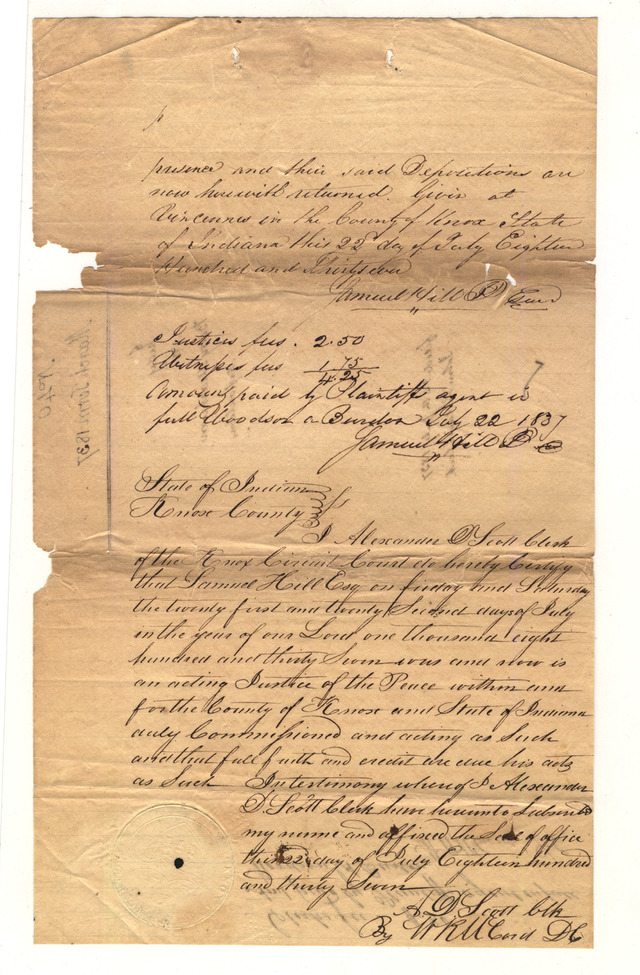 presence and their said Depositions are
now herewith returned. Given at
Vincennes in the County of Knox State
of Indiana this 22d day of July Eighteen
Hundred and Thirty seven
Samuel Hill J P Seal
Justices fees. 2.50
Witnesses fees 1.75
4.25
Amount paid by Plaintiffs agent in
full Woodson a Burdon July 22 1837
Samuel Hill J P
State of Indiana
Knox County Ss
I Alexander D Scott Clerk
of the Knox Circuit Court do hereby Certify
that Samuel Hill Esq on friday and Saturday
the twenty first and twenty Second days of July
in the year of our Lord one thousand eight
hundred and thirty Seven was and now is
an acting Justice of the Peace within and
for the County of Knox and State of Indiana
duly Commissioned and acting as Such
and that full faith and credit are due his acts
as Such In testimony whereof I Alexander
D. Scott Clerk have hereunto Subscribed
my name and affixed the Seal of office
this 22 day of July Eighteen hundred
and thirty Seven
A D. Scott Clk
By W R McCord DC
March Term 1837